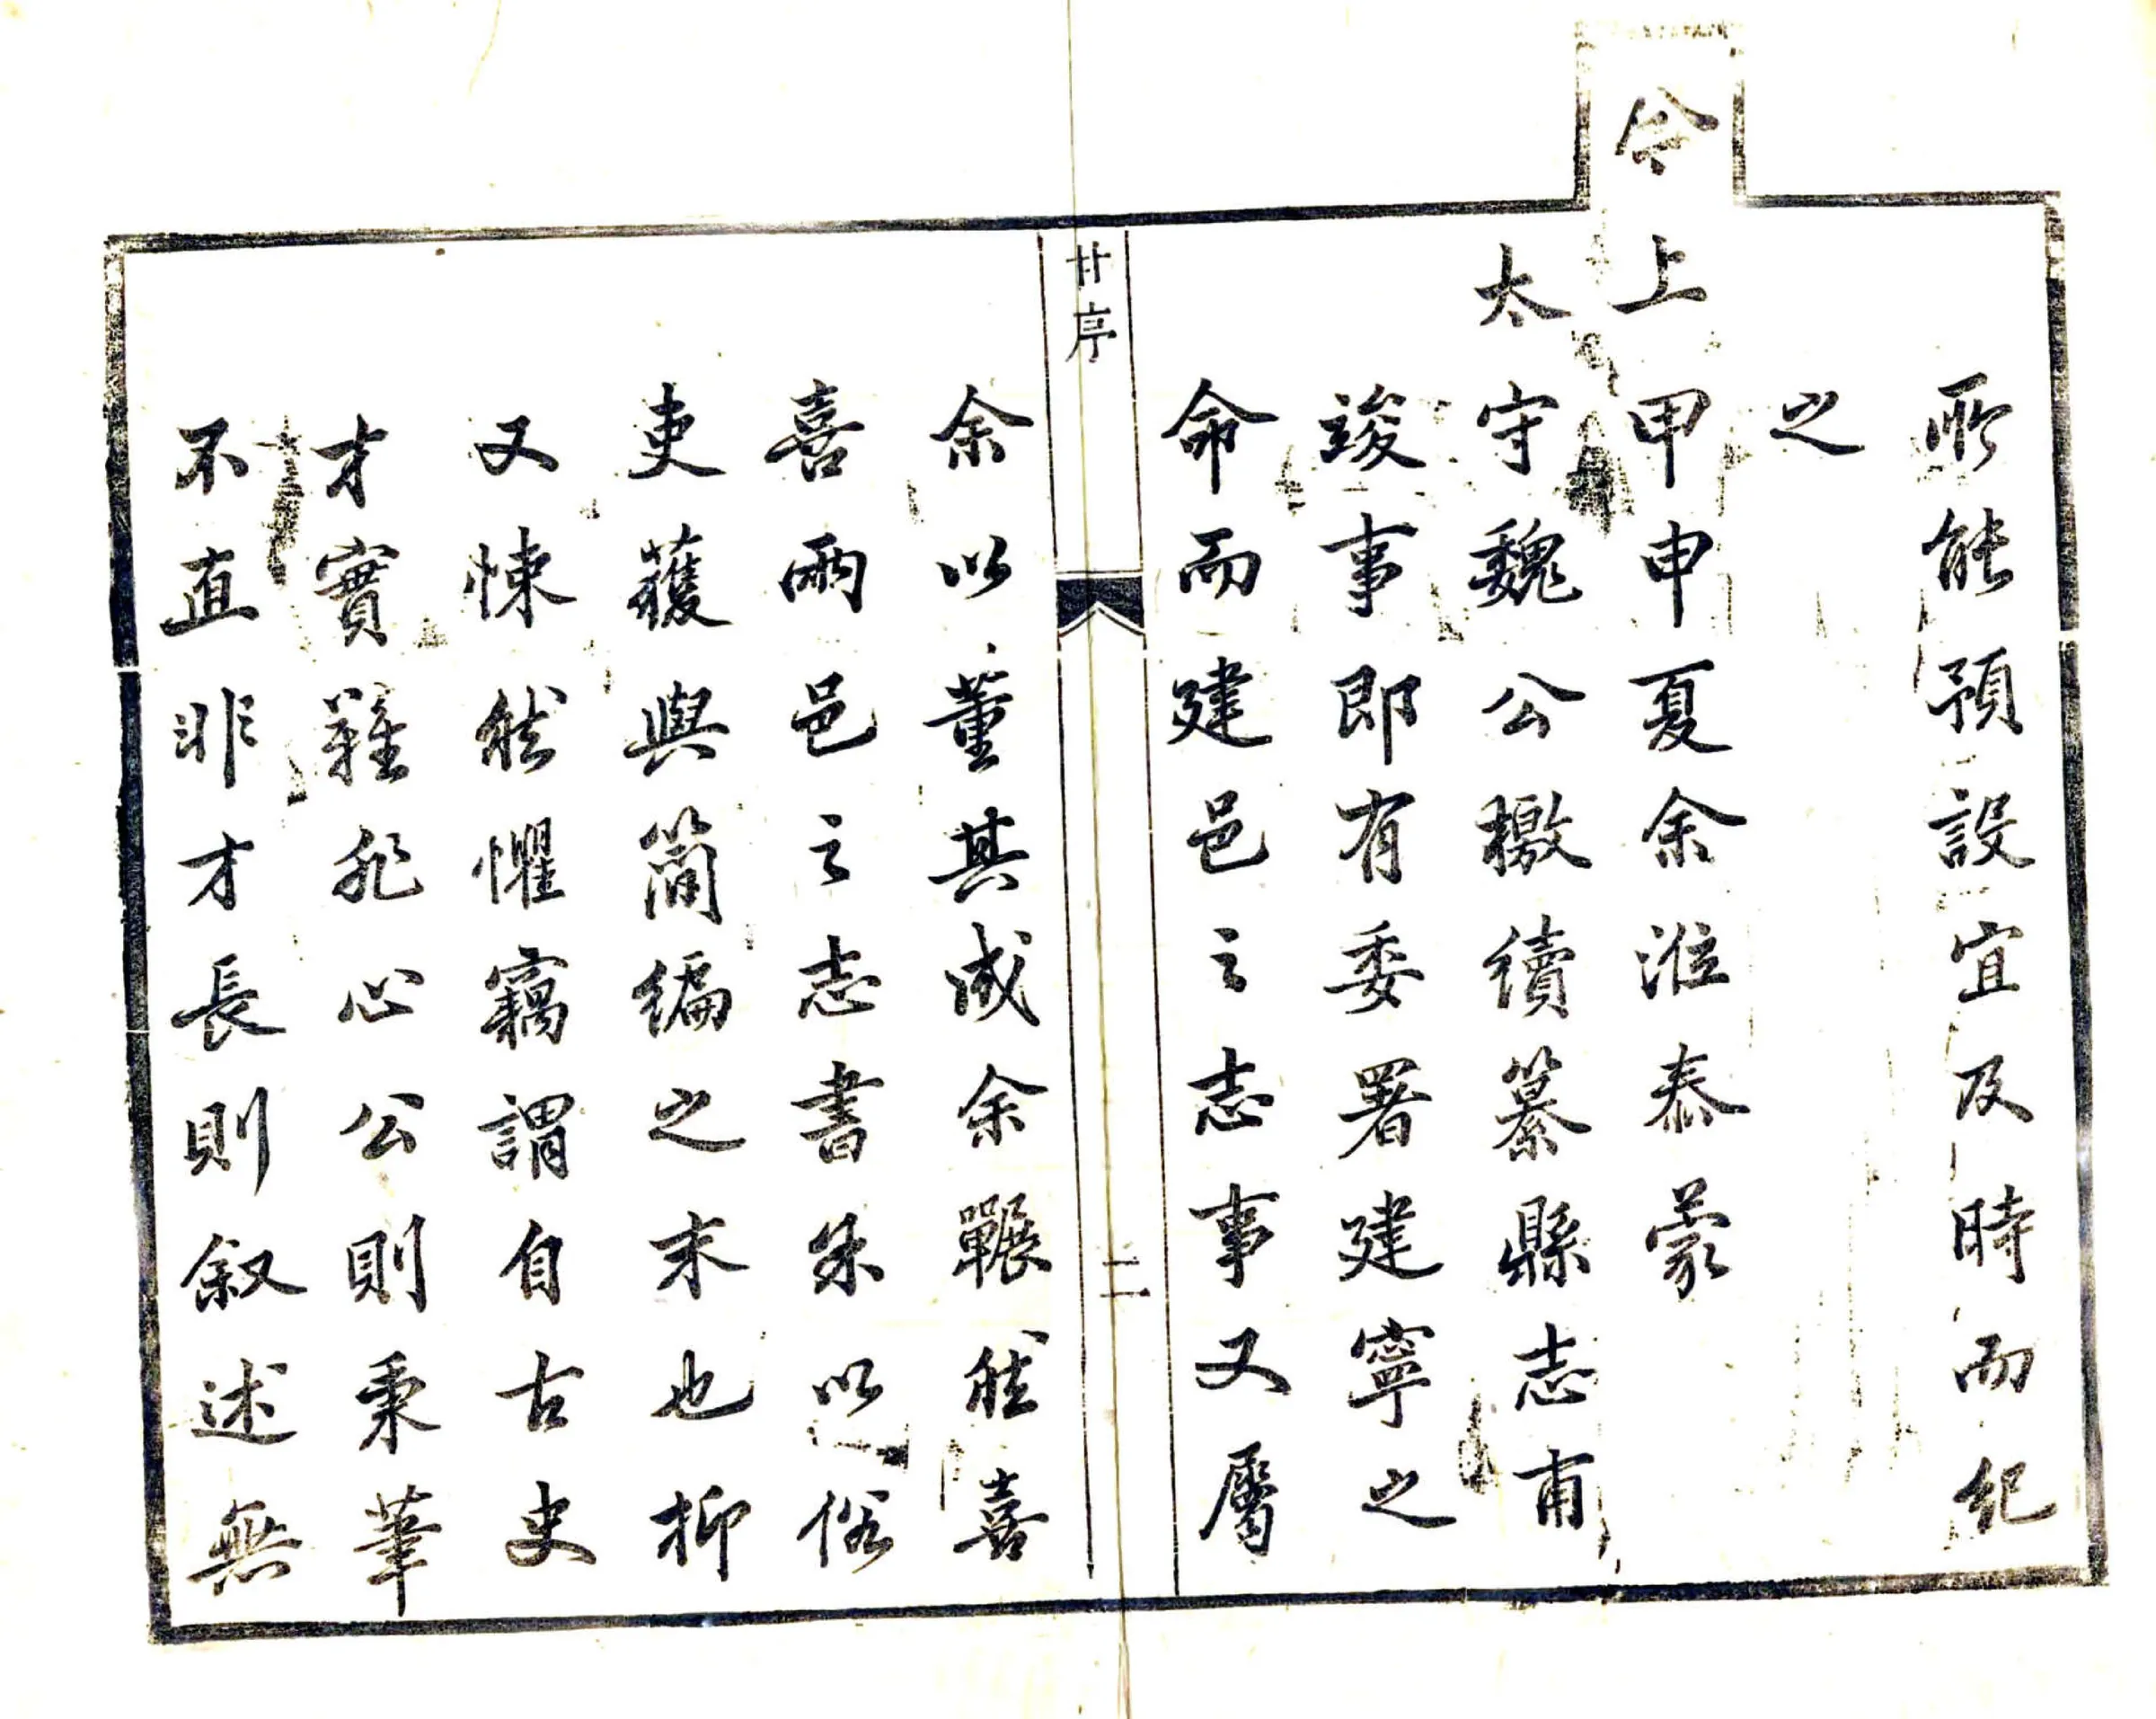 所能預設宜及時而紀
之
今上甲申夏余涖泰蒙
太守魏公檄續纂縣志甫
竣事即有委署建寧之
命而建邑之志事又屬
甘序
二
余以董其成余囅然喜
喜兩邑之志書以俗
吏獲與簡編之末也抑
又悚然懼竊謂自古史
才實難非心公則秉筆
不直非才長則叙述無